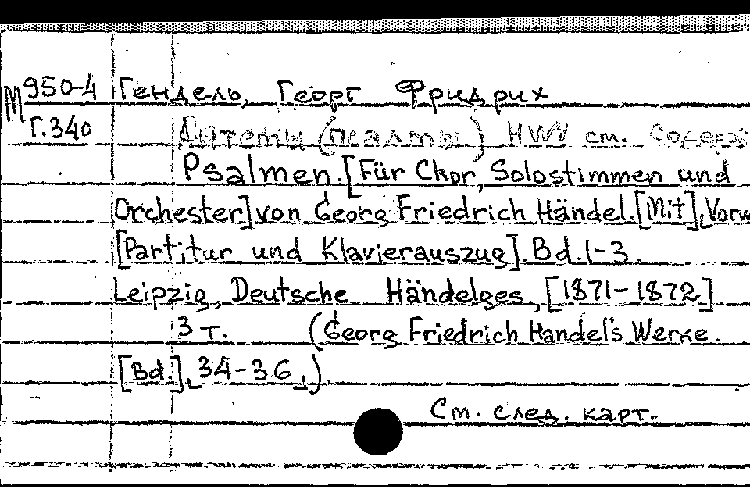 М 950-4 Гендель, Георг Фридрих
Г.340 Антемы (псалмы) HWV см. Содерж
Psalmen. [Für Chor, Solostimmen und
Orchester] von Georg Friedrich Händel. [Mit] Vorw
[Partitur und Klavierauszug]. Bd. 1-3.
Leipzig, Deutsche Händelges, [1871-1872]
3 т. (Georg Friedrich Handel's Werke.
[Bd.], 34-36.)
См. след. карт.